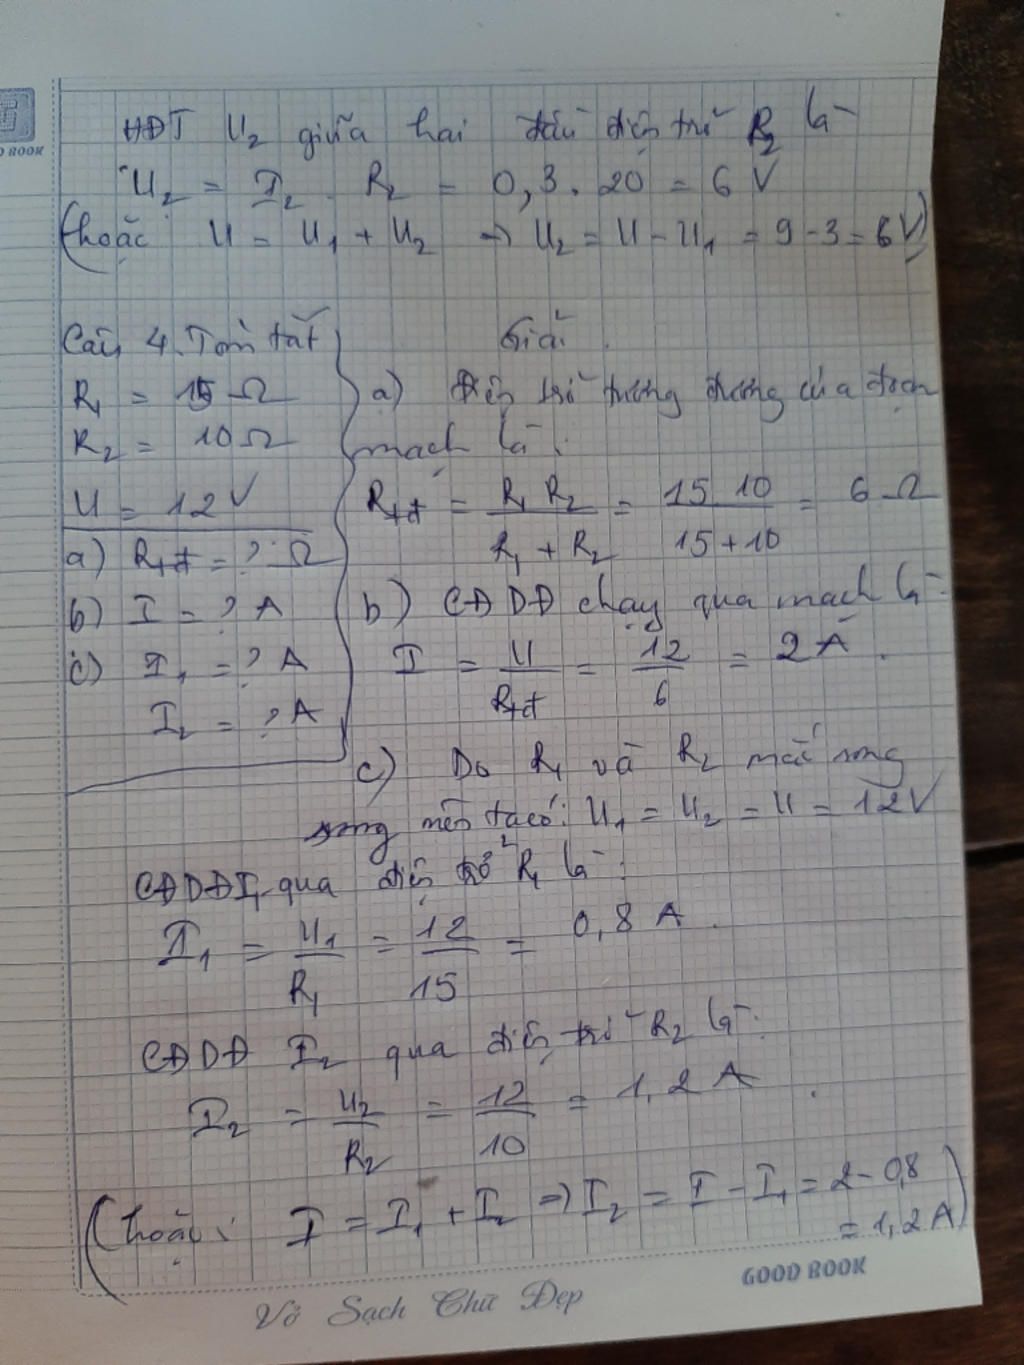 BOOK
HĐT U₂ giữa hai đầu điện trở R₂ là
U₂ = I₂ . R₂ = 0,3 . 20 = 6 V
(hoặc U = U₁ + U₂ → U₂ = U - U₁ = 9 - 3 = 6V)
Câu 4. Tóm tắt
R₁ = 15 Ω
R₂ = 10 Ω
U = 12 V
a) Rtđ = ? Ω
b) I = ? A
c) I₁ = ? A
I₂ = ? A
Giải.
a) Điện trở tương đương của đoạn
mạch là:
Rtđ = R₁ R₂ / R₁ + R₂ = 15 . 10 / 15 + 10 = 6 Ω
b) CĐDĐ chạy qua mạch là
I = U / Rtđ = 12 / 6 = 2 A.
c) Do R₁ và R₂ mắc song
song nên ta có: U₁ = U₂ = U = 12 V
CĐDĐ I₁ qua điện trở R₁ là:
I₁ = U₁ / R₁ = 12 / 15 = 0,8 A.
CĐDĐ I₂ qua điện trở R₂ là:
I₂ = U₂ / R₂ = 12 / 10 = 1,2 A.
(hoặc: I = I₁ + I₂ ⇒ I₂ = I - I₁ = 2 - 0,8
= 1,2 A)
GOOD BOOK
Vở Sạch Chữ Đẹp